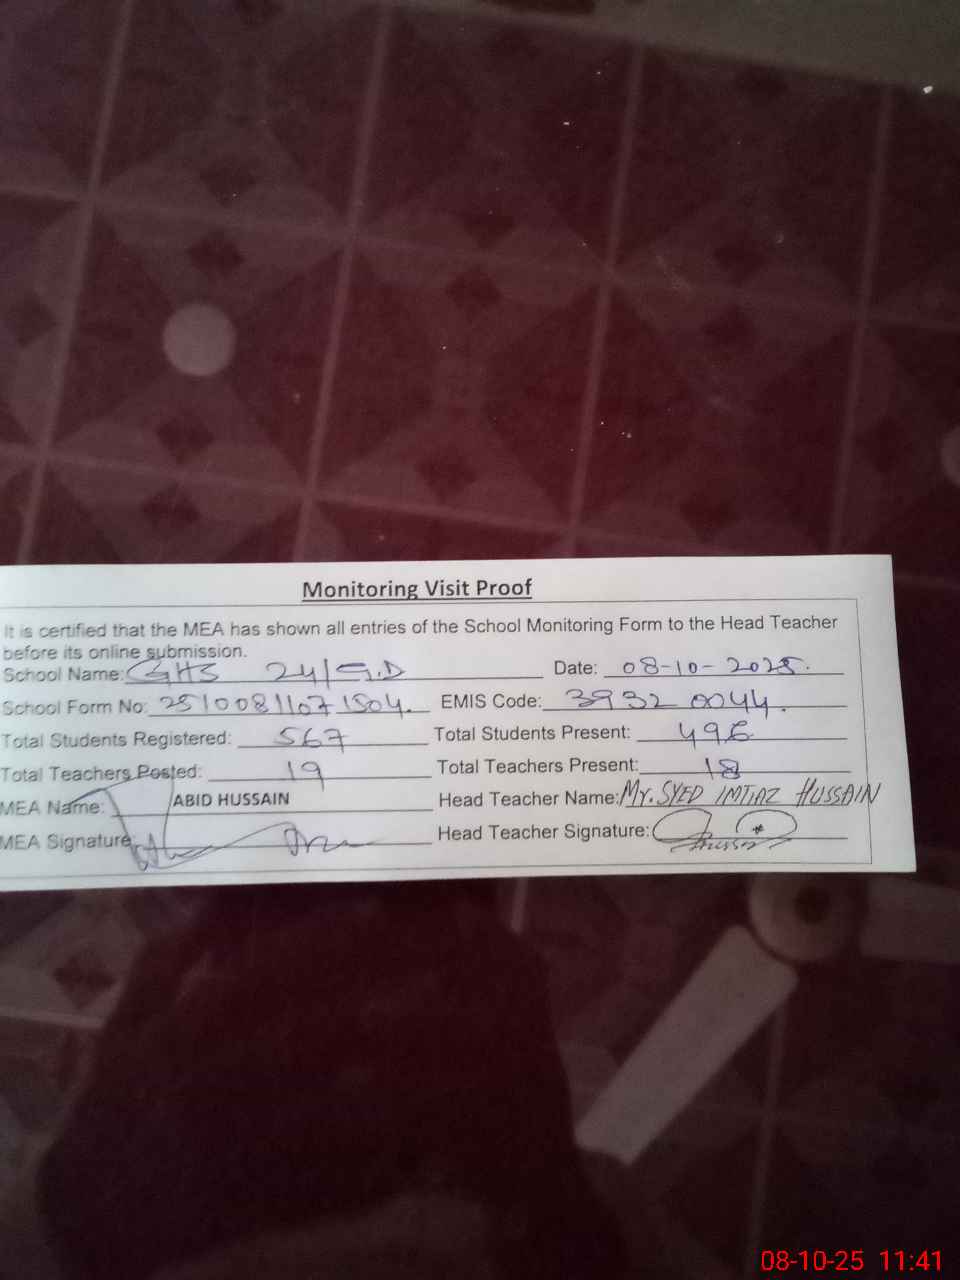 Monitoring Visit Proof
It is certified that the MEA has shown all entries of the School Monitoring Form to the Head Teacher
before its online submission.
School Name: GHS 24/G.D Date: 08-10-2025.
School Form No: 25100811071504. EMIS Code: 39320044.
Total Students Registered: 567 Total Students Present: 496
Total Teachers Posted: 19 Total Teachers Present: 18
MEA Name: ABID HUSSAIN Head Teacher Name: Mr. SYED IMTIAZ HUSSAIN
MEA Signature: Head Teacher Signature:
08-10-25 11:41